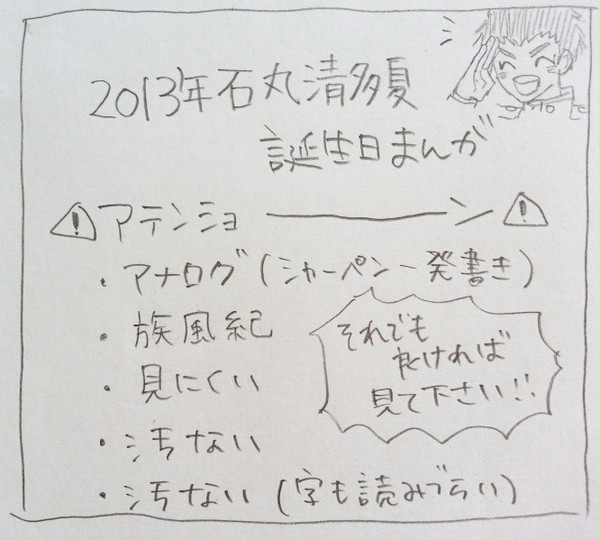 2013年石丸清多夏
誕生日まんが
アテンショーーーン
・アナログ(シャーペン一発書き)
・族風紀
・見にくい
・汚ない
・汚ない(字も読みづらい)
それでも
良ければ
見て下さい!!